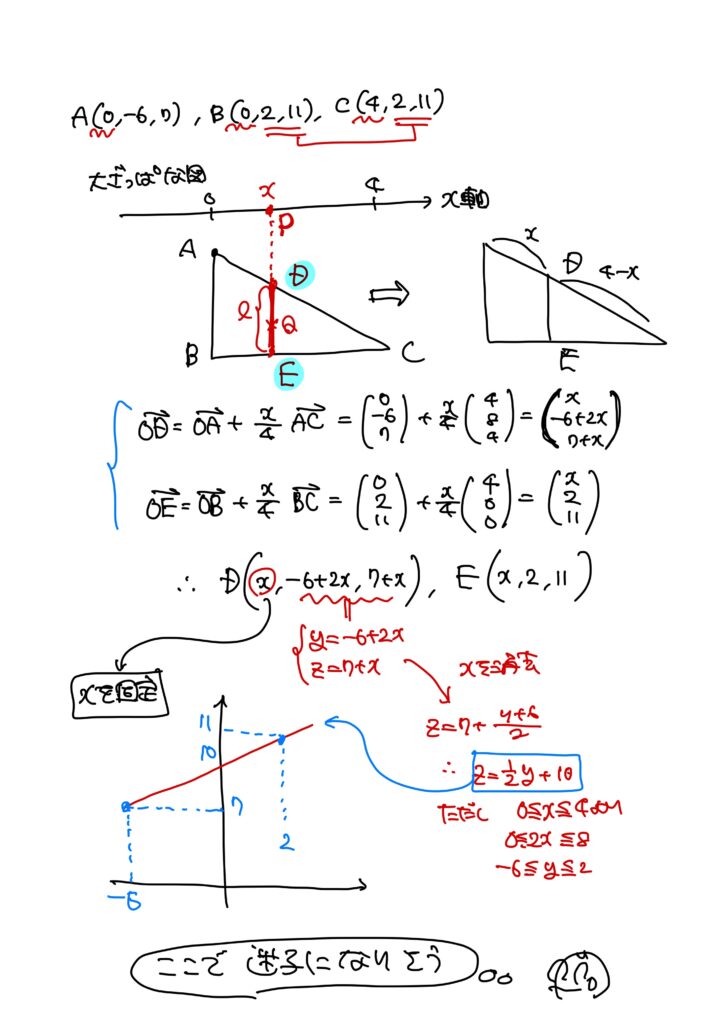 A(0,-6,7), B(0,2,11), C(4,2,11)
大ざっぱな図
0 x 4 x軸
P
A D
l Q
B E C
x D 4-x
E
OD = OA + x/4 AC = (0 -6 7) + x/4 (4 8 4) = (x -6+2x 7+x)
OE = OB + x/4 BC = (0 2 11) + x/4 (4 0 0) = (x 2 11)
∴ D(x, -6+2x, 7+x), E(x, 2, 11)
y=-6+2x
z=7+x
xを消去
xを固定
z=7+ y+6/2
∴ z=1/2y+10
ただし 0≦x≦4より
0≦2x≦8
-6≦y≦2
11
10
7
2
-6
ここで 迷子になりそう